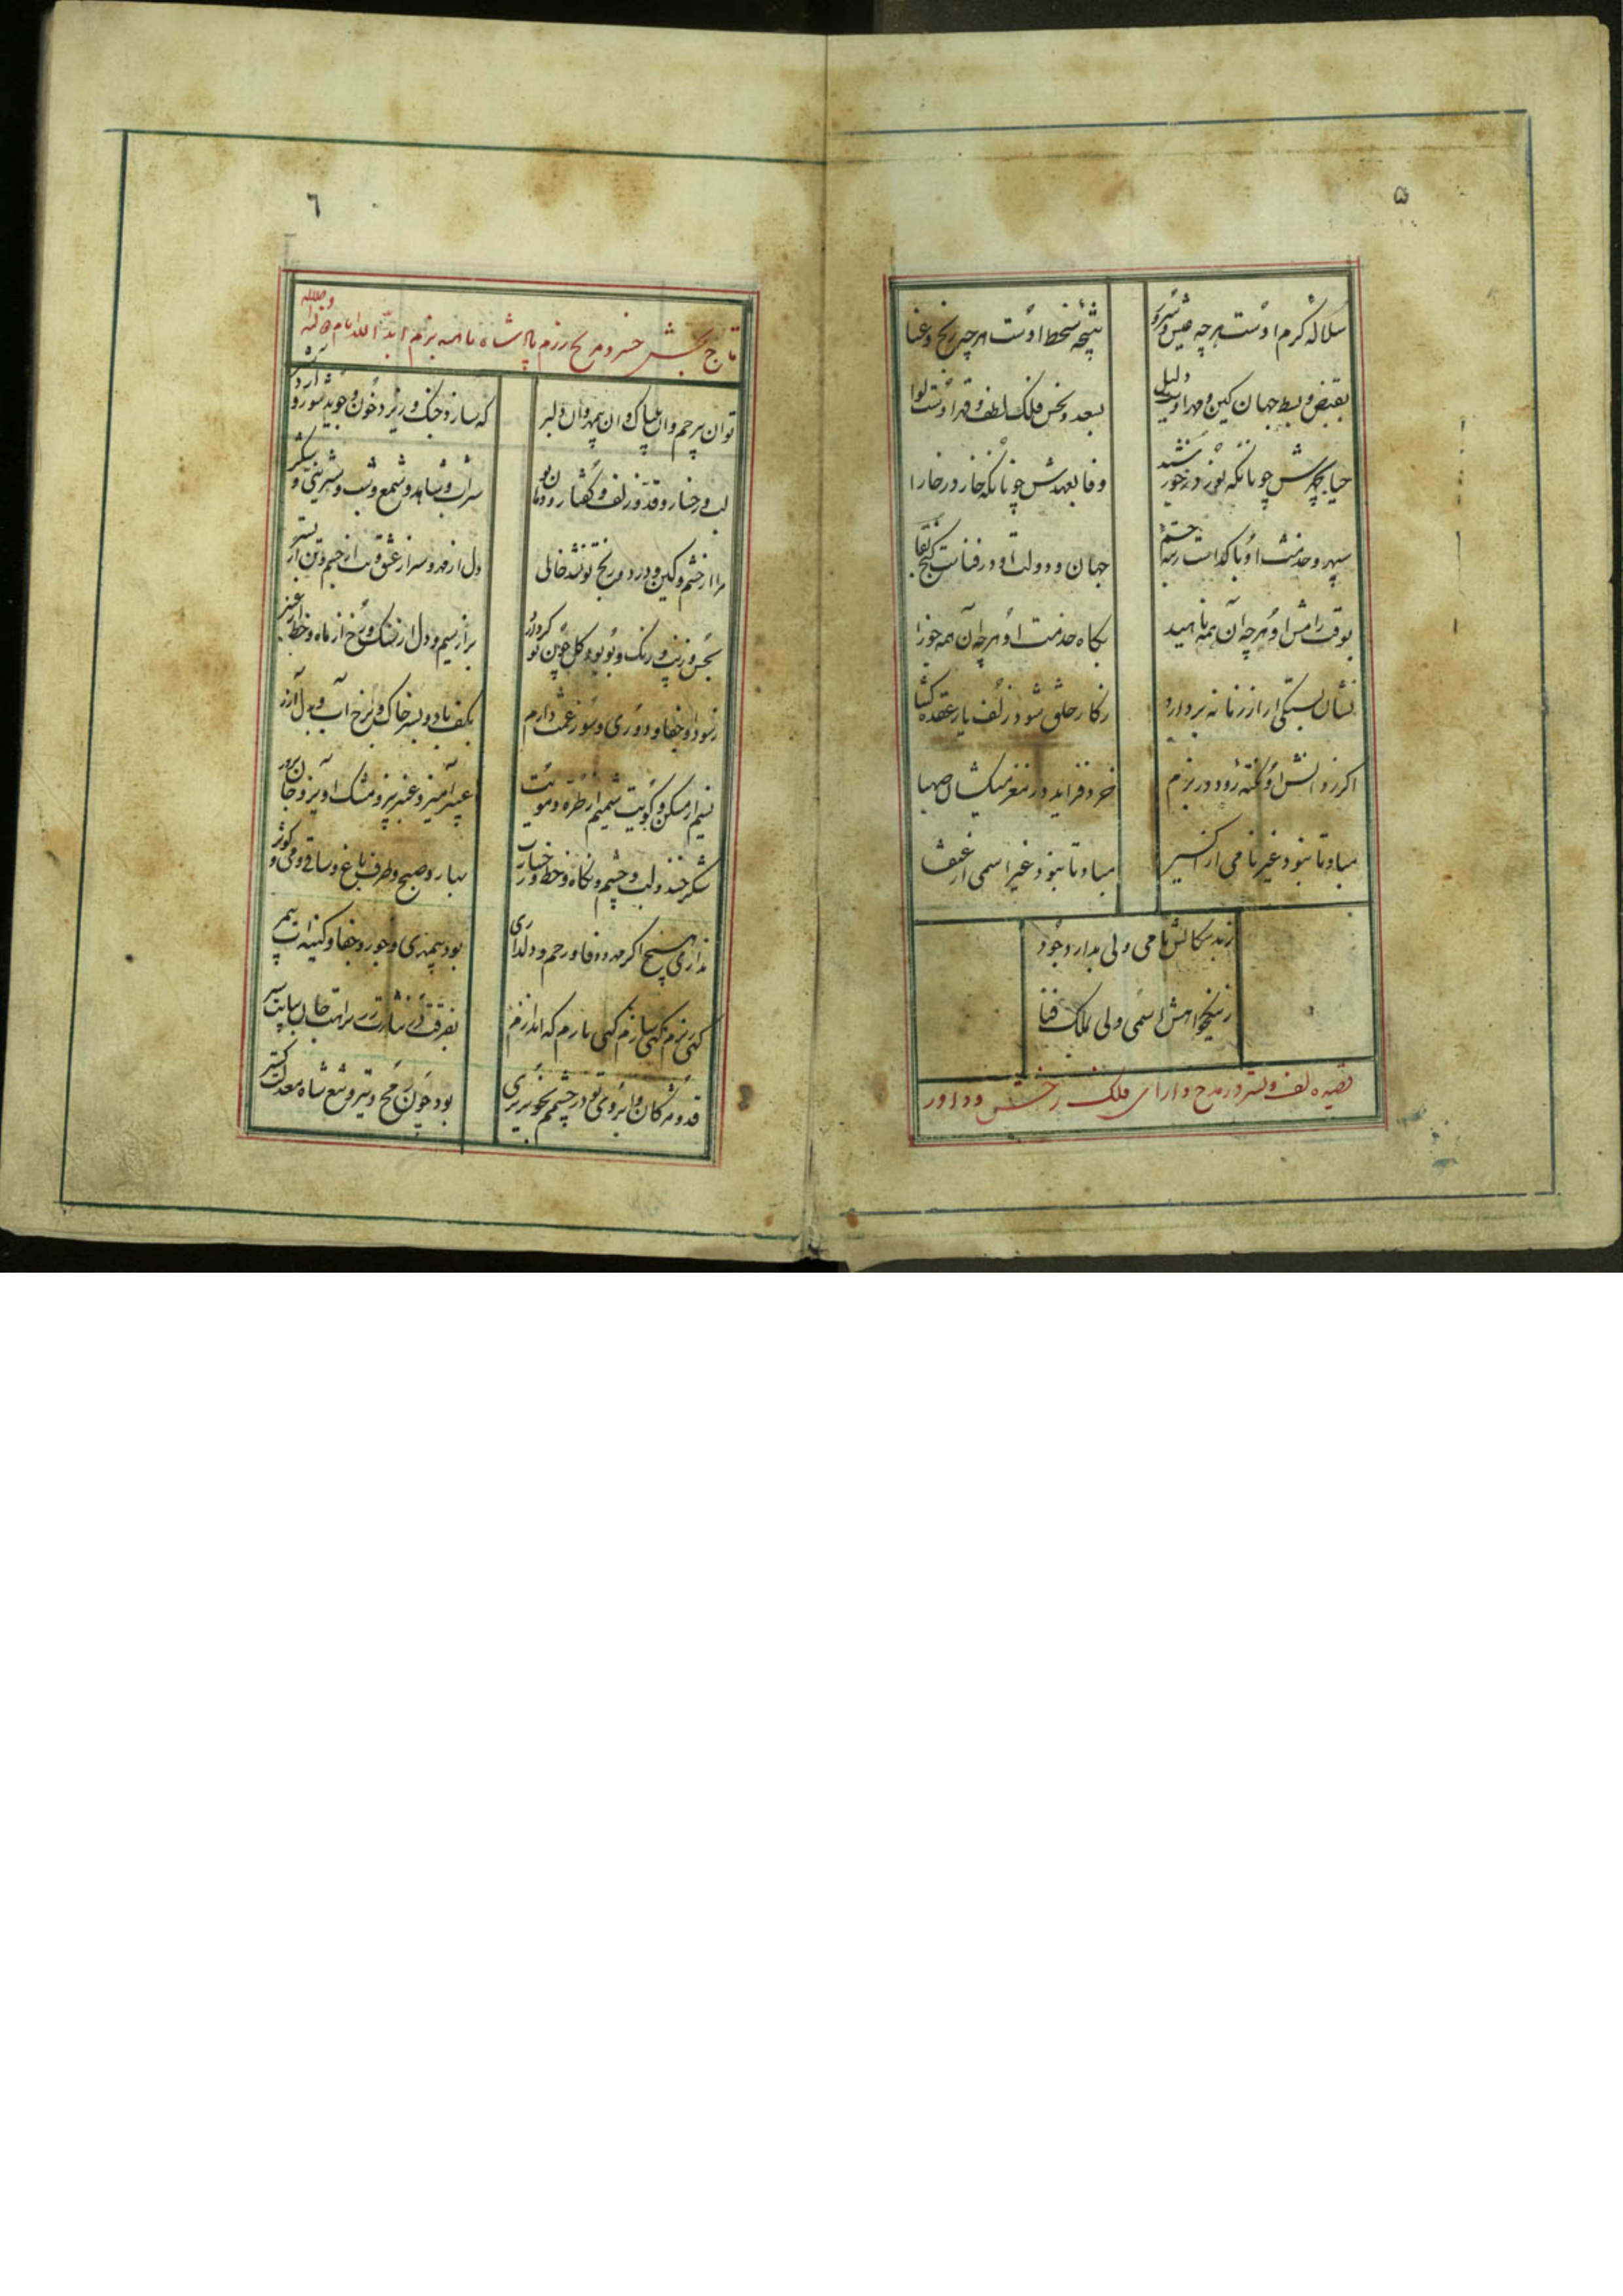 ۵
سلاله کرم اوست هر چه عیش و سرور
نتیجه سخط اوست هر چه رنج و عنا
بقبض و بسط جهان کین و مهر اوست دلیل
بسعد و نحس فلک لطف و قهر اوست لوا
حیا بچهرش چونانکه نور در خورشید
وفا بعهدش چونانکه خار در خارا
سپهر و خدمت او با
جهان و دولت او در فناست گنج بقا
بوقت رامش او هرچه آن همه ناهید
بگاه خدمت او هرچه آن همه جوزا
نشان بستگی ار از زمانه بردارد
ز کار خلق شود زلف یار عقده گشا
اگر ز دانش او نکته رود در بزم
خرد فزاید در مغز میکشان صهبا
مباد تا نبود غیر نامی از اکسیر
مباد تا نبود غیر اسمی از عنقا
ز بدسگالش نامی ولی بدار وجود
ز نیکخواهش اسمی ولی بملک فنا
قصیده لف و نشر در مدح دارای فلک رخش و داور
٦
تاج بخش خسرو مریخ رزم پادشاه ناهید بزم
تو ان پر چم و ان بیباک و ان بیمهر و ان دلبر
که سازد جنگ و ریزد خون و جوید شور و آرد شر
لب و رخسار و قد و زلف و گفتار و
شراب و شاهد و شمع و شب و شیرینی و شکر
مرا از خشم و کین و درد و رنج تو نشد خالی
دل از مهر و سر از عشق و تب از جسم و تن از بستر
بحسن و زیب و رنگ و بو بود گل چون تو گر دارد
بر از سیم و دل از سنگ و رخ از ماه و خط از عنبر
ز سودا و جفا و دوری و سوز غمت دارم
بکف باد و بسر خاک و برخ آب و بدل آذر
نسیم از مسکن و کویت شمیم از طره و مویت
عبیر آمیز و عنبر بیز و مشک آویز و جان پرور
شکر خند و لب و چشم و نگاه و خط و رخسارت
بهار و صبح و طرف باغ و ساقی و می و کوثر
نداری هیچ اگر مهر و وفا و رحم و دلداری
بود بیمهری و جور و جفا و کینه ات بیمر
گهی بزم گهی سازم گهی نازم که اندازم
بفرقت
قد و مژگان و ابروی تو در چشمم بخونریزی
بود چون رمح و تیر و تیغ شاه معدلت گستر